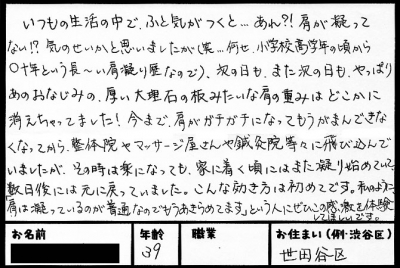 いつもの生活の中で、ふと気がつくと…あれ?!肩が凝って
ない!?気のせいかと思いましたが(笑…何せ、小学校高学年の頃から
〇十年という長〜い肩凝り歴なので)、次の日も、また次の日も、やっぱり
あのおなじみの、厚い大理石の板みたいな肩の重みはどこかに
消えちゃってました!今まで、肩がガチガチになってもうがまんできな
くなってから、整体院やマッサージ屋さんや鍼灸院等々に飛び込んで
いましたが、その時は楽になっても、家に着く頃にはまた凝り始めていて、
数日後には元に戻っていました。こんな効き方は初めてです。私のように、
「肩は凝っているのが普通なのでもうあきらめてます」という人にぜひこの感激を体験
してほしいです。
お名前 年齢 職業 お住まい(例:渋谷区)
39 世田谷区